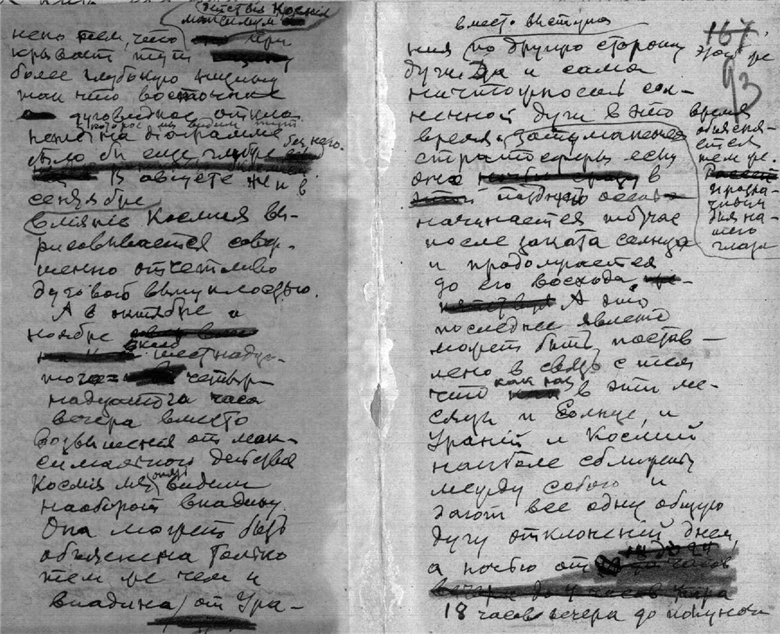 действия Космия
максимум
нено тем, что при
крывает тут
более глубокую низину
так что восточнее
дуговидное откло-
нение на диаграмме
было бы еще глубже без него.
В августе же и в
сентябре
влияние Космия вы-
рисовывается совер-
шенно отчетливо
дуговой выпуклостью.
А в октябре и
ноябре
около шестнадца-
того четыр-
надцатого часа
вечера вместо
возвышения от мак-
симального действия
Космия мы опять видели
наоборот впадину
Она может быть
объяснена только
тем же чем и
впадина от Ура-
вместо выступа
167.
93
ния по другую сторону
дуги. Да и сама
ничтожность сол-
нечной дуги в это время
время затуманения
стратосферы если
оно в
поздней осенью
начинается тотчас
после заката солнца
и продолжается
до его восхода
А это
последнее явление
может быть постав-
лено в связь с тем
что как раз в эти ме-
сяцы и Солнце, и
Ураний и Космий
наиболее сближены
между собою и
дают все одну общую
дугу отклонений днем,
а ночью от
18 часов вечера до полуночи
этой же
объясня-
ется
тем же.
прозра-
для на-
шего
глаза